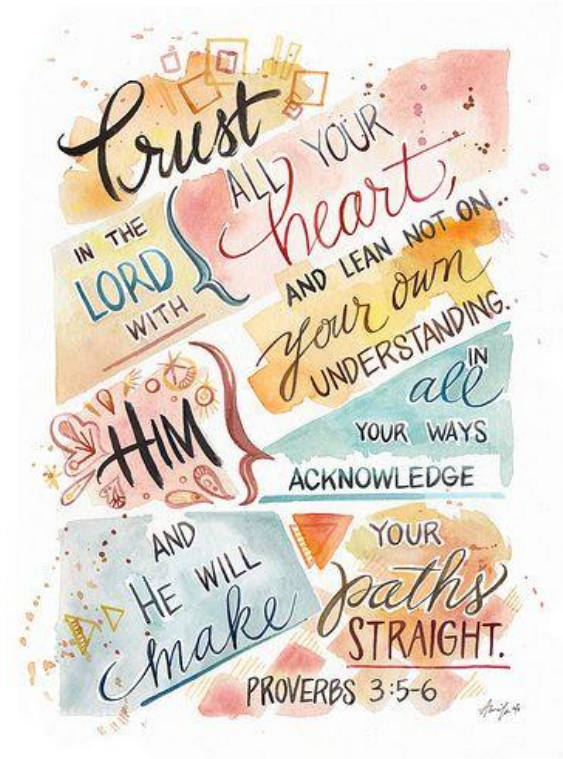 Trust
IN THE
LORD
WITH
ALL YOUR
heart,
AND LEAN NOT ON
your own
UNDERSTANDING.
IN
all
YOUR WAYS
ACKNOWLEDGE
HIM
AND
HE WILL
make
YOUR
paths
STRAIGHT.
PROVERBS 3:5-6